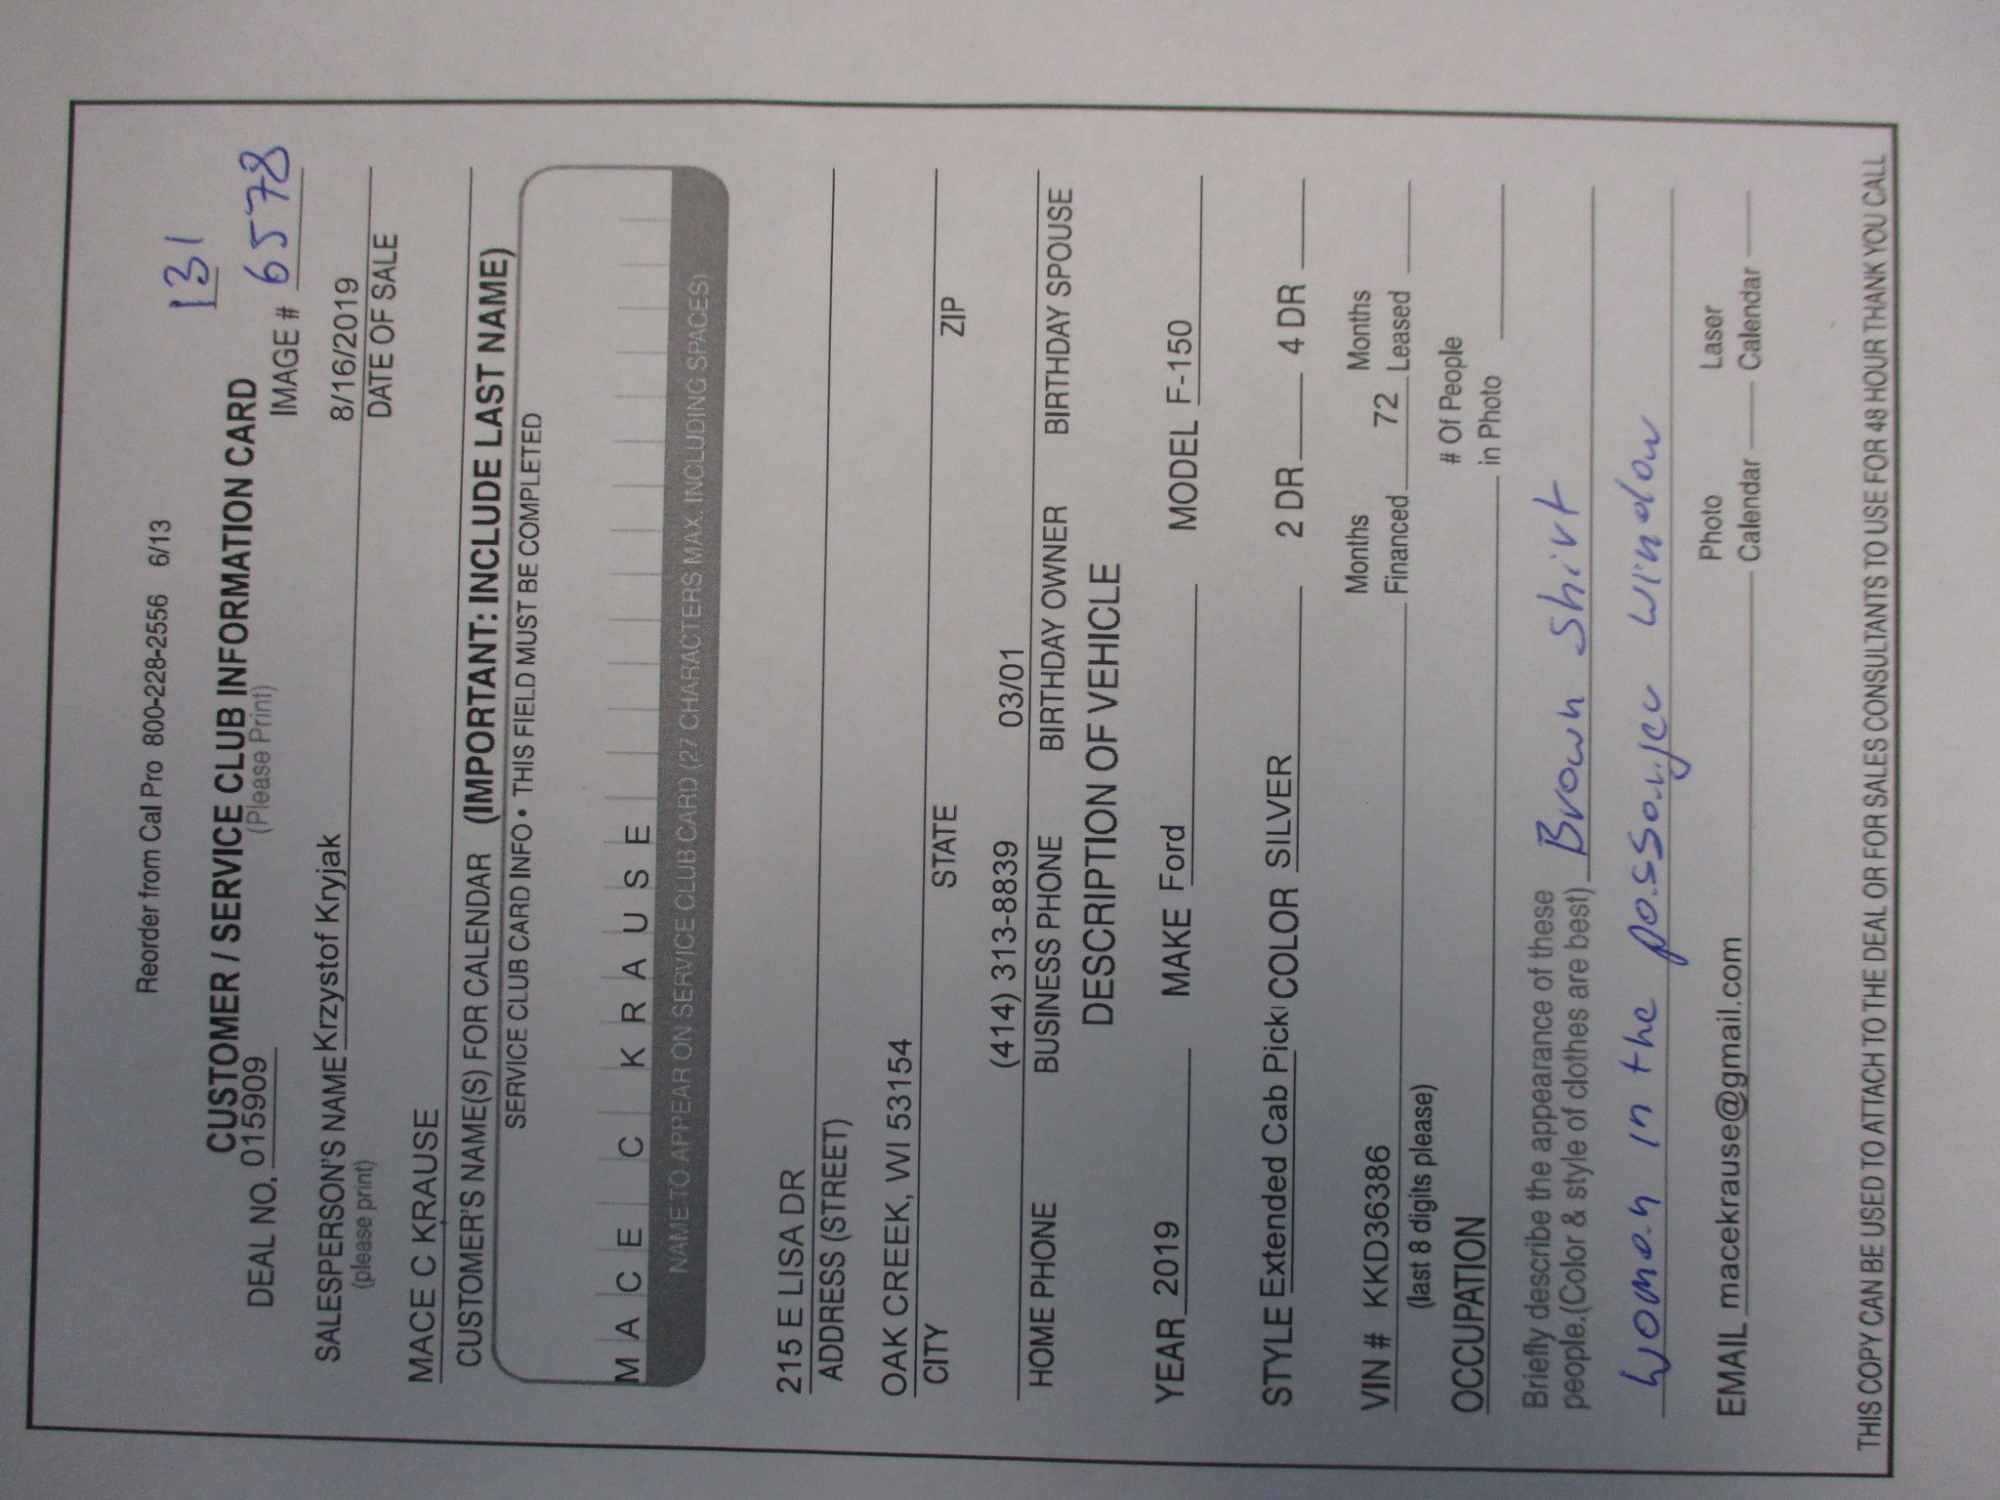 Reorder from Cal Pro 800-228-2556 6/13
131
CUSTOMER / SERVICE CLUB INFORMATION CARD
DEAL NO. 015909 (Please Print) IMAGE # 6578
SALESPERSON'S NAME Krzystof Kryjak 8/16/2019
(please print) DATE OF SALE
MACE C KRAUSE
CUSTOMER'S NAME(S) FOR CALENDAR (IMPORTANT: INCLUDE LAST NAME)
SERVICE CLUB CARD INFO • THIS FIELD MUST BE COMPLETED
MACE C KRAUSE
NAME TO APPEAR ON SERVICE CLUB CARD (27 CHARACTERS MAX. INCLUDING SPACES)
215 E LISA DR
ADDRESS (STREET)
OAK CREEK, WI 53154
CITY STATE ZIP
(414) 313-8839 03/01
HOME PHONE BUSINESS PHONE BIRTHDAY OWNER BIRTHDAY SPOUSE
DESCRIPTION OF VEHICLE
YEAR 2019 MAKE Ford MODEL F-150
STYLE Extended Cab Picki COLOR SILVER 2 DR 4 DR
Months Months
VIN # KKD36386 Financed 72 Leased
(last 8 digits please)
# Of People
OCCUPATION in Photo
Briefly describe the appearance of these
people.(Color & style of clothes are best) Brown Shirt
woman in the passanger window
Photo Laser
EMAIL macekrause@gmail.com Calendar Calendar
THIS COPY CAN BE USED TO ATTACH TO THE DEAL OR FOR SALES CONSULTANTS TO USE FOR 48 HOUR THANK YOU CALL